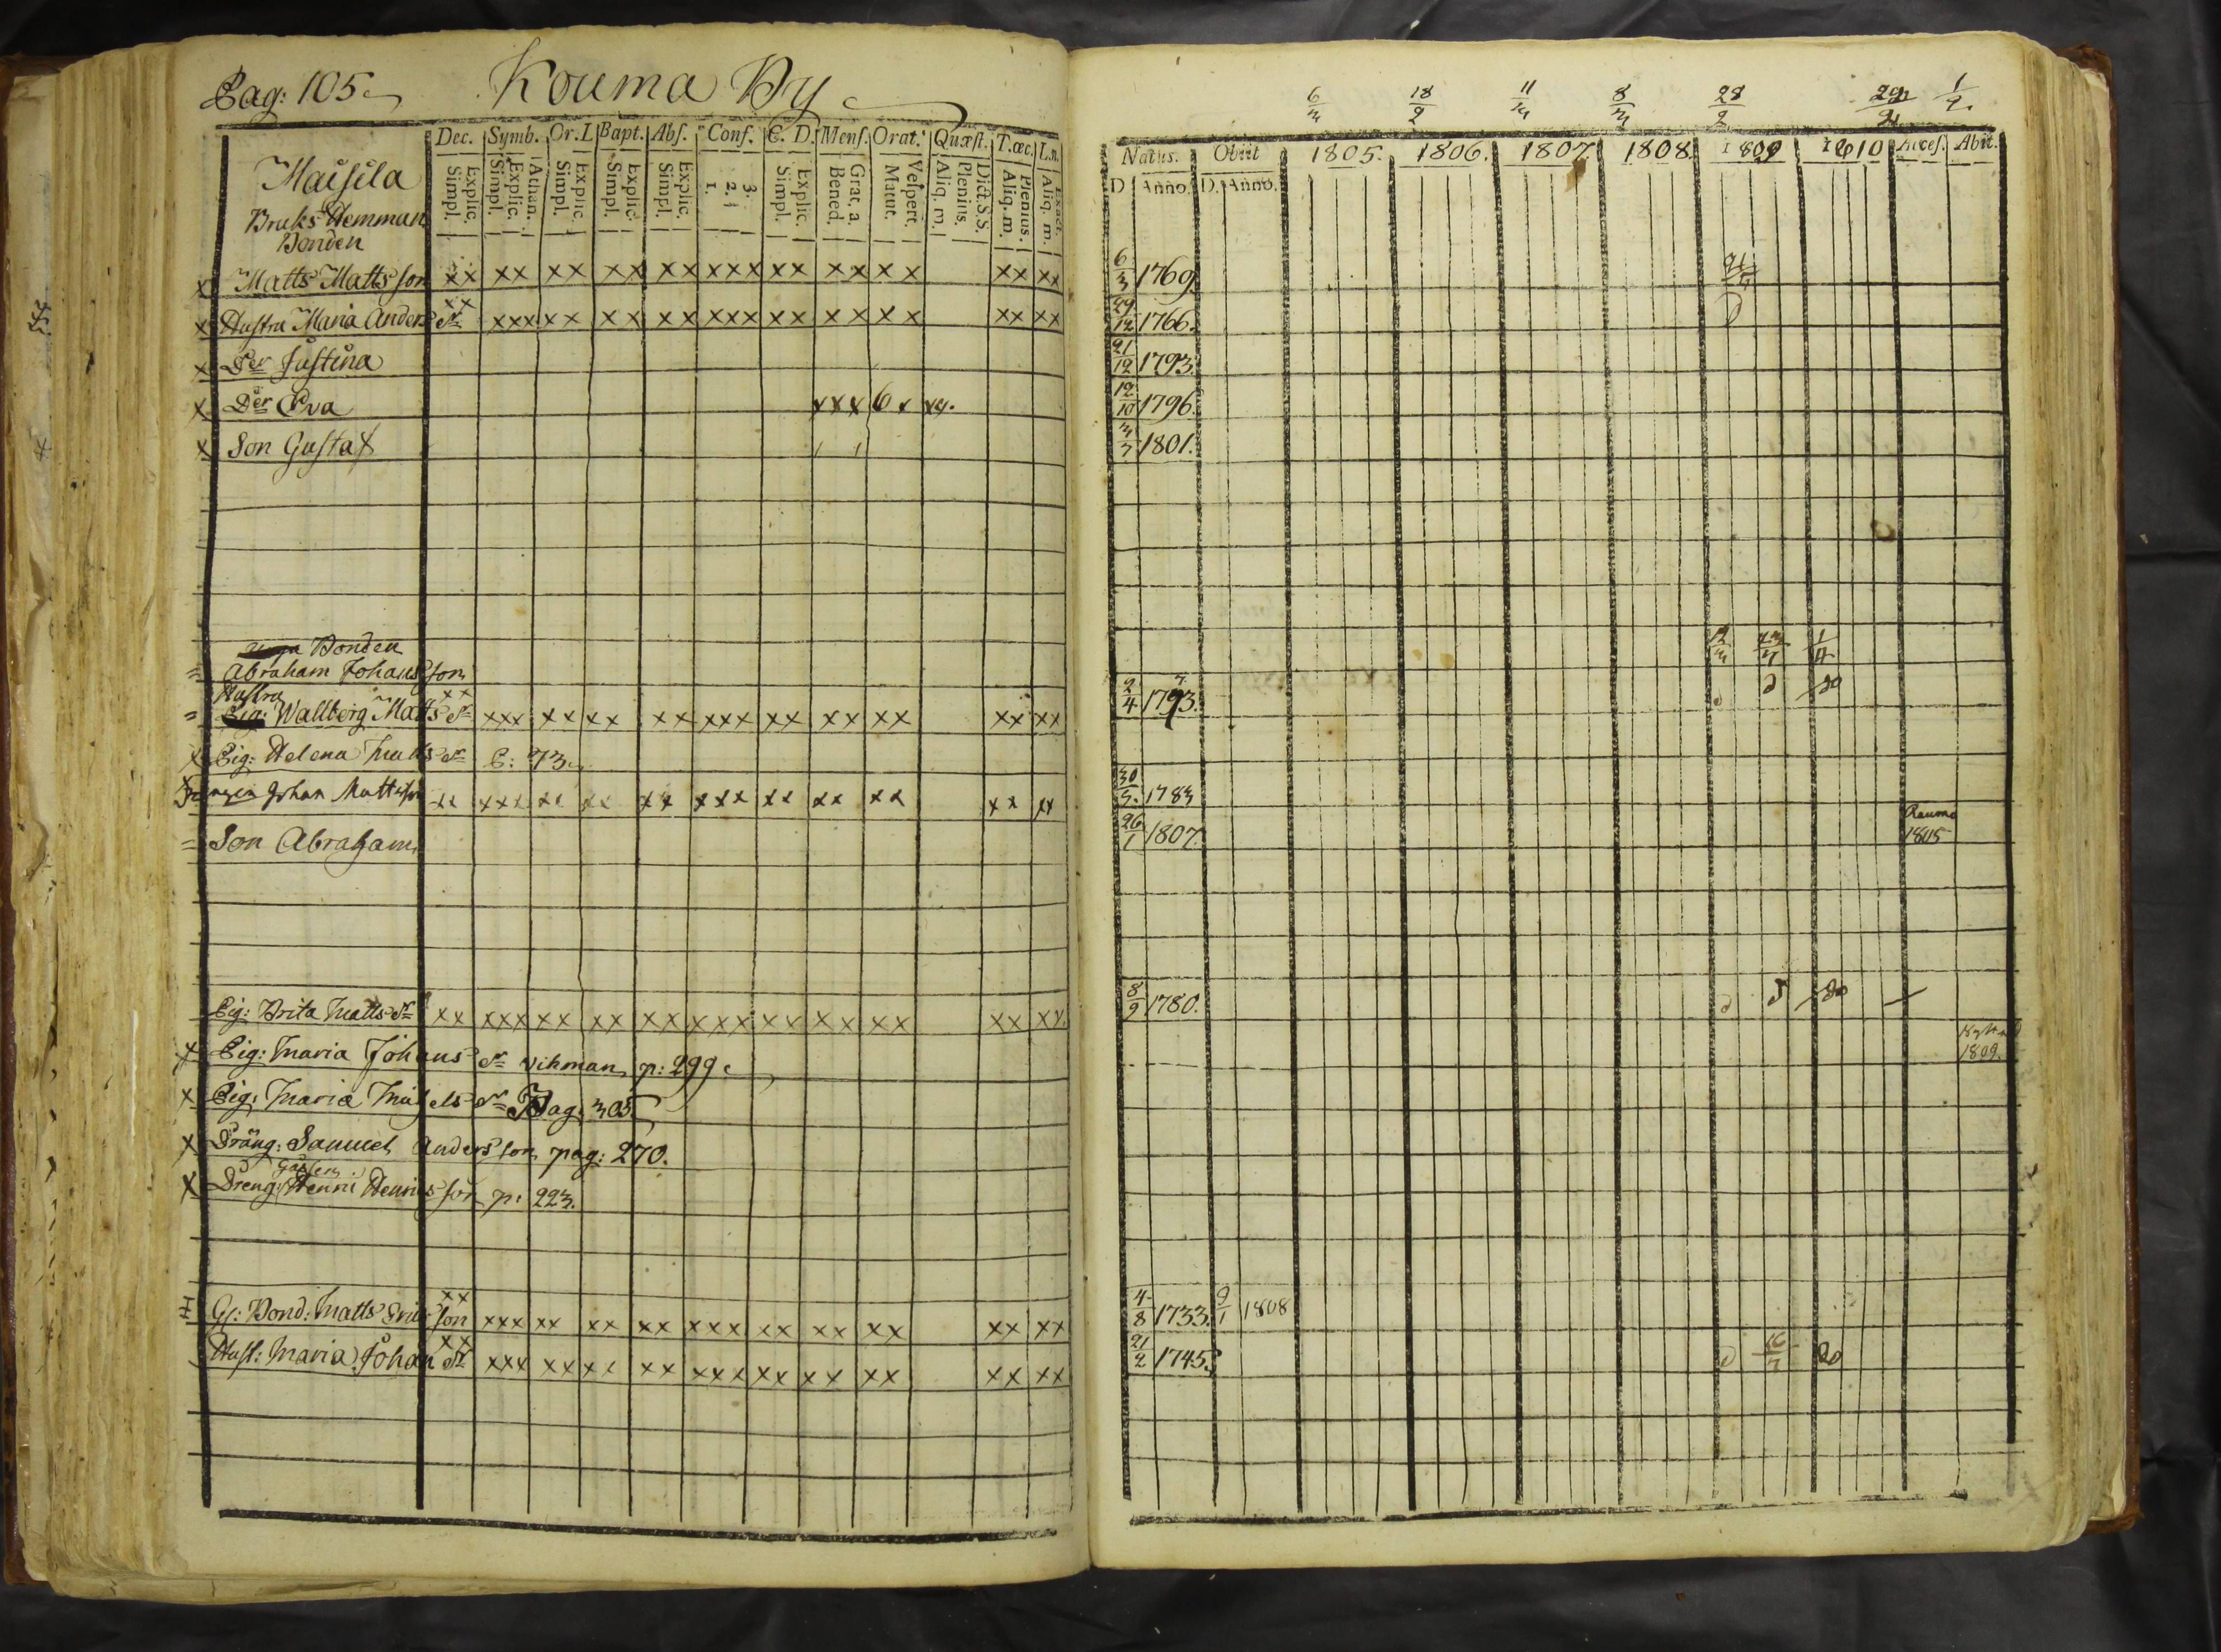 Pag: 105. Kouma By
Dec. Symb. Or. D. Bapt. Abſ. Conf. C. D. Menſ. Orat. Quæſt. T.œc. L.n.
Explic. Simpl. Athan. Explic. Simpl. Explic. Simpl. Explic. Simpl. Explic. Simpl. 3. 2. 1. Explic. Simpl. Grat. a. Bened. Veſpert. Matut. Dict. S.S. Plenius. Aliq. m. Plenius. Aliq. m. Exact. Aliq. m.
Maisila
Bruks Hemman
Bonden
x Matts Matts son xx xx xx xx xx xxx xx xx xx xx xx
x Hustru Maria Anders dr xx xxx xx xx xx xxx xx xx xx xx xx
x Der Justina
x Der Eva xxx 6 x xx.
x Son Gustaf
Bonden
= Abraham Johans son
Hustru
= Wallborg Matts dr xx xxx xx xx xx xxx xx xx xx xx xx
x Pig: Helena Matts dr P: 73.
Johan Matts son xx xxx xx xx xx xxx xx xx xx xx xx
= Son Abraham
Pig: Brita Matts dr xx xxx xx xx xx xxx xx xx xx xx xx
x Pig: Maria Johans dr Vikman p: 299.
x Pig: Maria Michels dr Pag: 305.
x Dräng: Samuel Anders son pag: 270.
Gossen
x Dreng: Henric Henrics son p: 223.
Gl: Bond: Matts Erics son xx xxx xx xx xx xxx xx xx xx xx xx
Hust: Maria Johans dr xx xxx xx xx xx xxx xx xx xx xx xx
6/3 18/2 11/3 8/3 28/2 1/2.
Natus. Obiit 1805. 1806. 1807. 1808. 1809 1810 Acceſ. Abit.
D. Anno. D. Anno.
6/3 1769.
29/12 1766.
21/12 1793.
12/10 1796.
3/3 1801.
1/4
2/4 1793.
30/5. 1783
26/1 1807. Rauma 1805
8/9 1780.
1809.
4/8 1733. 9/1 1808
21/2 1745. 16/7